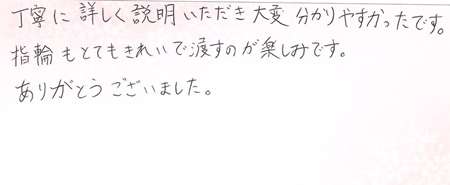 丁寧に詳しく説明いただき大変分かりやすかったです。
指輪もとてもきれいで渡すのが楽しみです。
ありがとうございました。